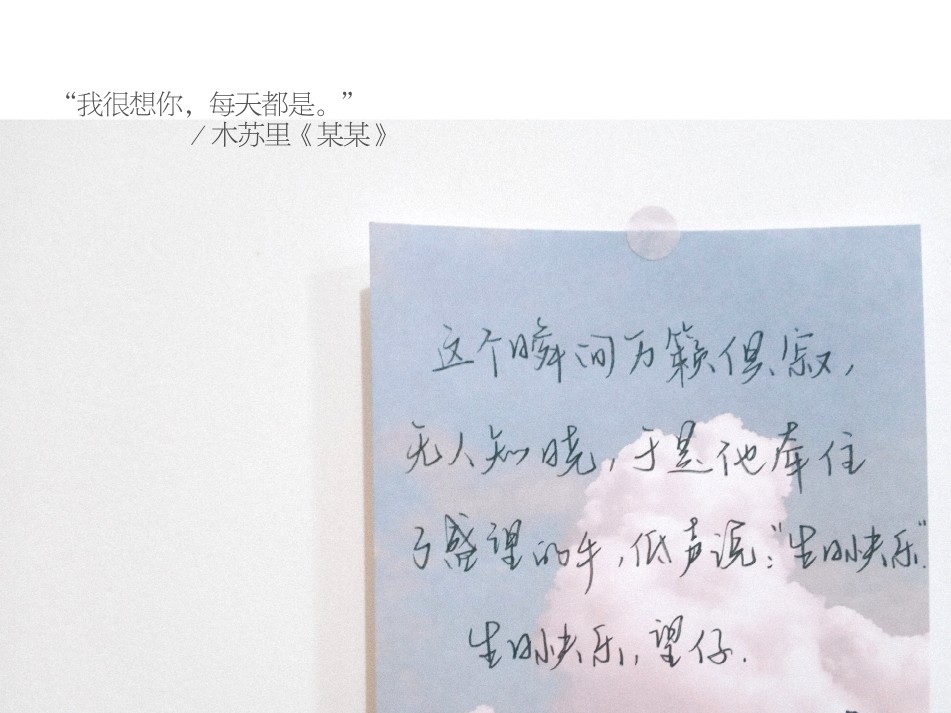 “我很想你，每天都是。”
/ 木苏里《某某》
这个瞬间万籁俱寂，
无人知晓，于是他牵住
了盛望的手，低声说：“生日快乐”
生日快乐，望仔.